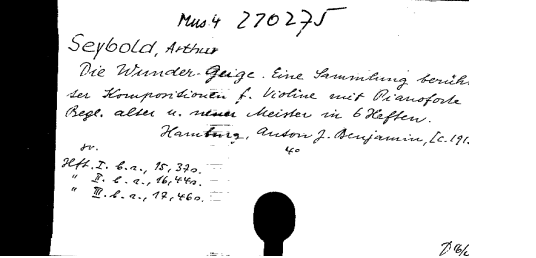 Mus 4 270275
Seybold, Arthur
Die Wunder-Geige. Eine Sammlung berühm-
ter Kompositionen f. Violine mit Pianoforte
Begl. alter u. neuer Meister in 6 Heften.
Hamburg, Anton J. Benjamin, [c.191.
4°
Heft. I. b. a., 15, 37 S.
" II. b. a., 16, 44 S.
" III. b. a., 17, 46 S.